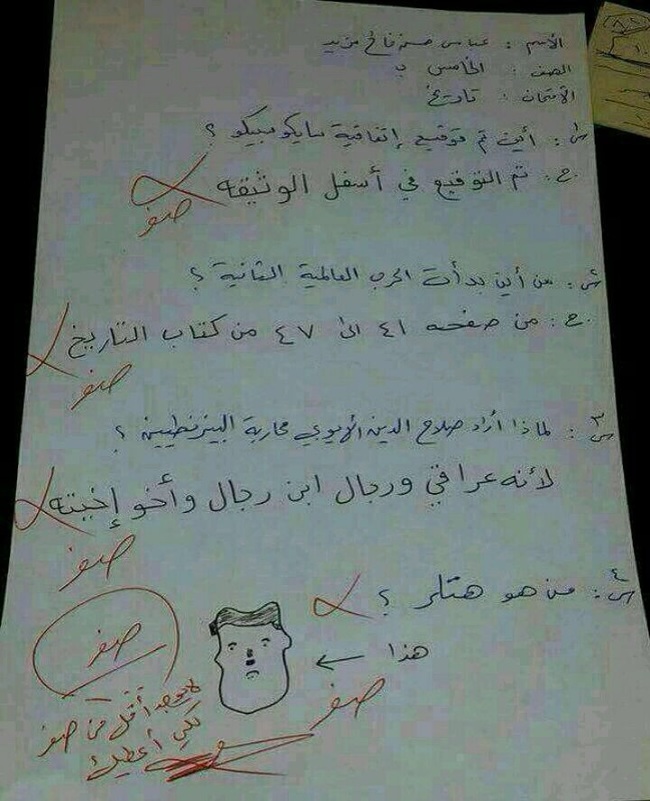 الأسم : عباس حسن فالح مزيد
الصف : الخامس ب
الأمتحان : تاريخ
س١: أين تم توقيع إتفاقية سايكوسبيكو ؟
ج: تم التوقيع في أسفل الوثيقه
صفر
س٢: من أين بدأت الحرب العالمية الثانية ؟
ج: من صفحه ٤١ الى ٤٧ من كتاب التاريخ
صفر
س٣: لماذا أراد صلاح الدين الأيوبي محاربة البيزنطيين ؟
لأنه عراقي ورجال ابن رجال وأخو إخيته
صفر
س٤: من هو هتلر ؟
هذا ←
صفر
صفر
لا يوجد أقل من صفر
لكي أعطيك